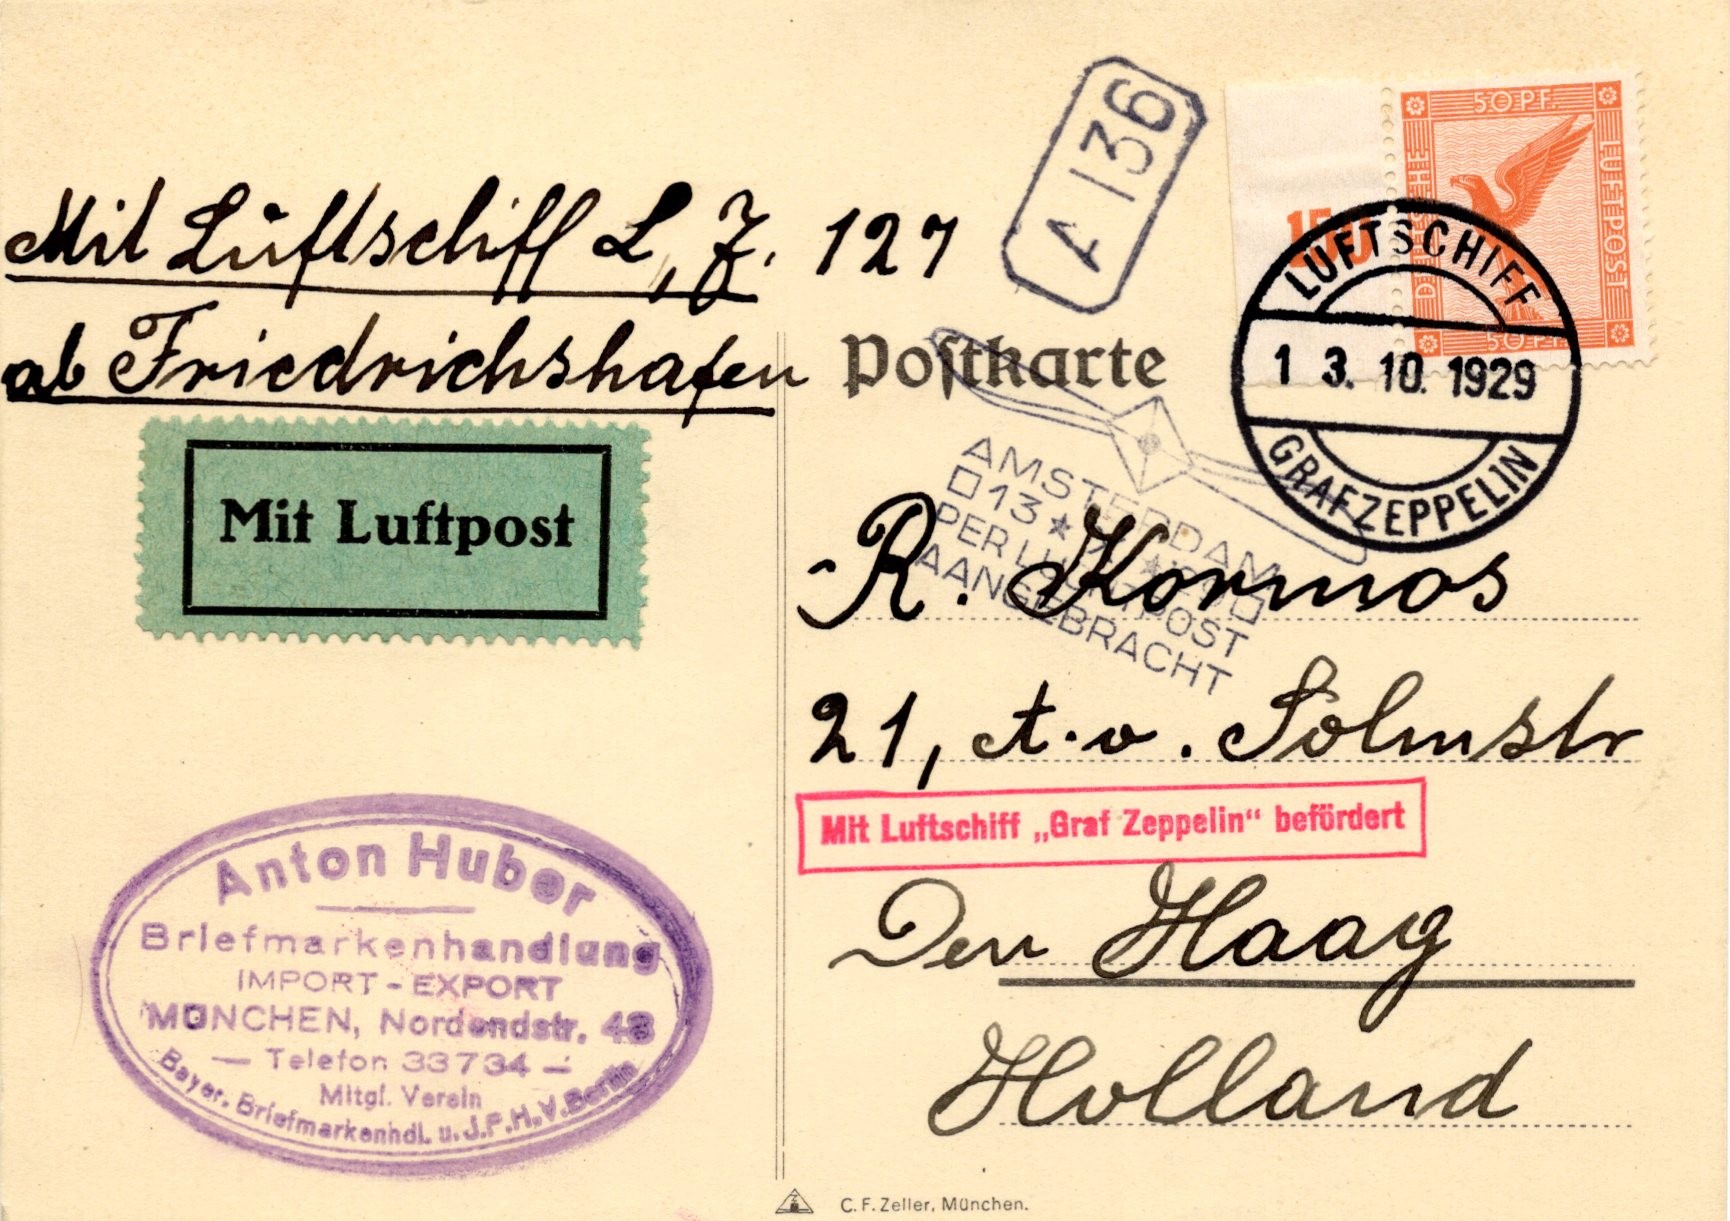 A 136
50 PF.
DEUTSCHE
LUFTPOST
50 PF.
Mit Luftschiff L, Z. 127
ab Friedrichshafen
LUFTSCHIFF
1 3. 10. 1929
GRAF ZEPPELIN
Postkarte
Mit Luftpost
AMSTERDAM
13
PER LUCHTPOST
AANGEBRACHT
R. Kormos
21, A. v. Solmstr
Mit Luftschiff „Graf Zeppelin“ befördert
Den Haag
Holland
Anton Huber
Briefmarkenhandlung
IMPORT - EXPORT
MÜNCHEN, Nordendstr. 48
— Telefon 33734 —
Mitgl. Verein
Bayer. Briefmarkenhdl. u. J.P.H.V. Berlin
C. F. Zeller, München.